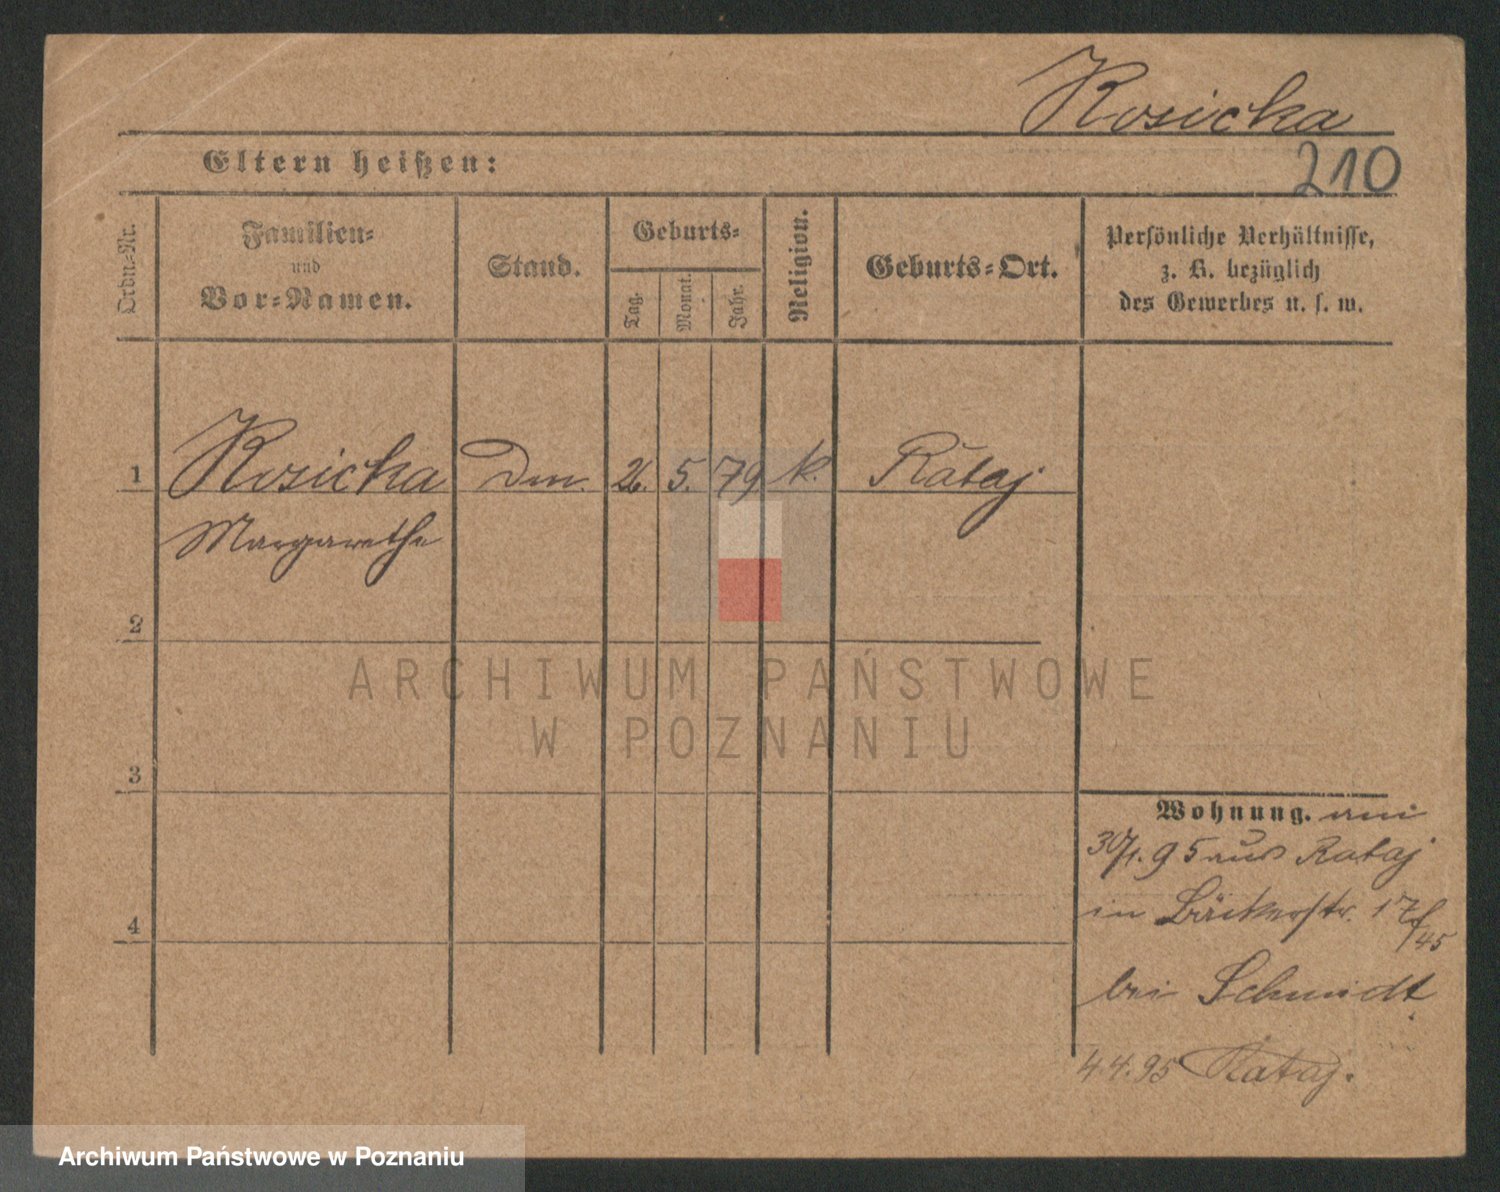 Rosicka
Eltern heißen:
210
Ordn.-Nr.
Familien-
und
Vor-Namen.
Stand.
Geburts-
Tag.
Monat.
Jahr.
Religion.
Geburts-Ort.
Persönliche Verhältnisse,
z. B. bezüglich
des Gewerbes u. s. w.
1 Rosicka 5. 79 k. Rataj
Margarethe
2
3
4
Wohnung.
30/1. 95 aus Rataj
in Bäckerstr. 17
bei Schmidt.
4.4.95 Rataj.
ARCHIWUM PAŃSTWOWE
W POZNANIU
Archiwum Państwowe w Poznaniu